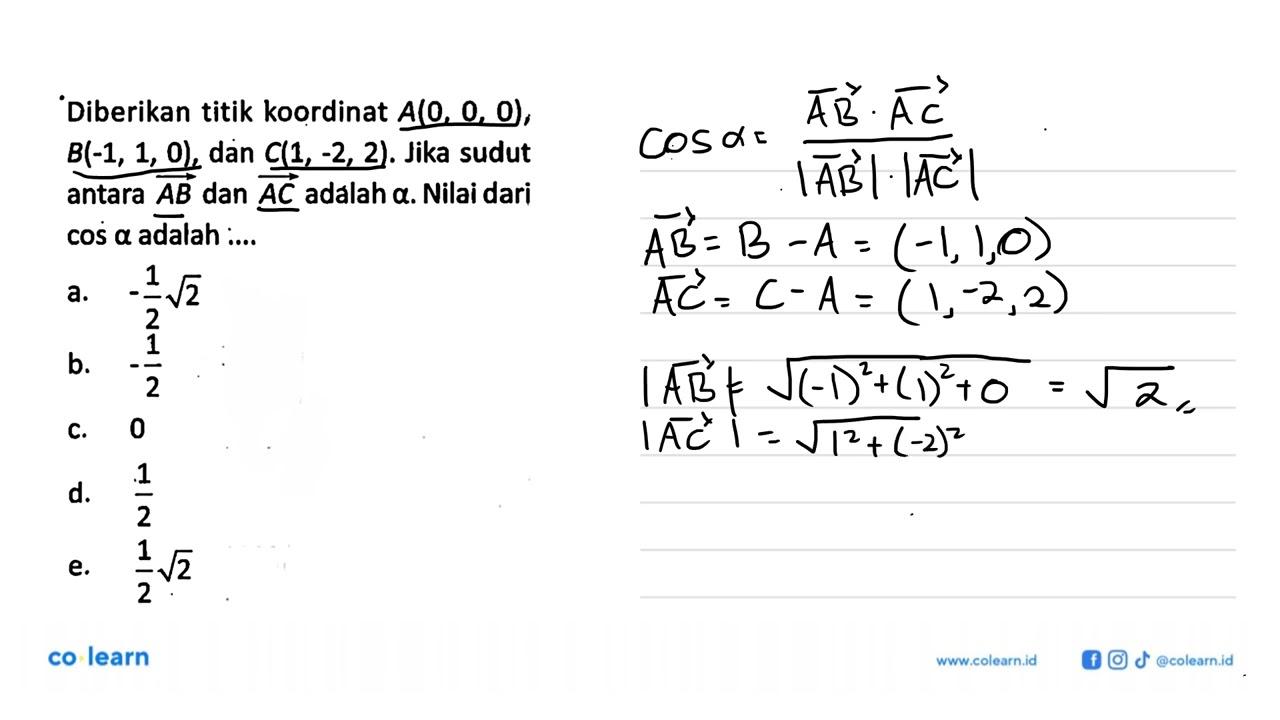 Diberikan titik koordinat A(0, 0, 0),
B(-1, 1, 0), dan C(1, -2, 2). Jika sudut
antara AB dan AC adalah α. Nilai dari
cos α adalah ....
a. -1/2 √2
b. -1/2
c. 0
d. 1/2
e. 1/2 √2
cos α = AB · AC / |AB| · |AC|
AB = B - A = (-1, 1, 0)
AC = C - A = (1, -2, 2)
|AB| = √(-1)² + (1)² + 0 = √2
|AC| = √1² + (-2)²
co learn
www.colearn.id
@colearn.id